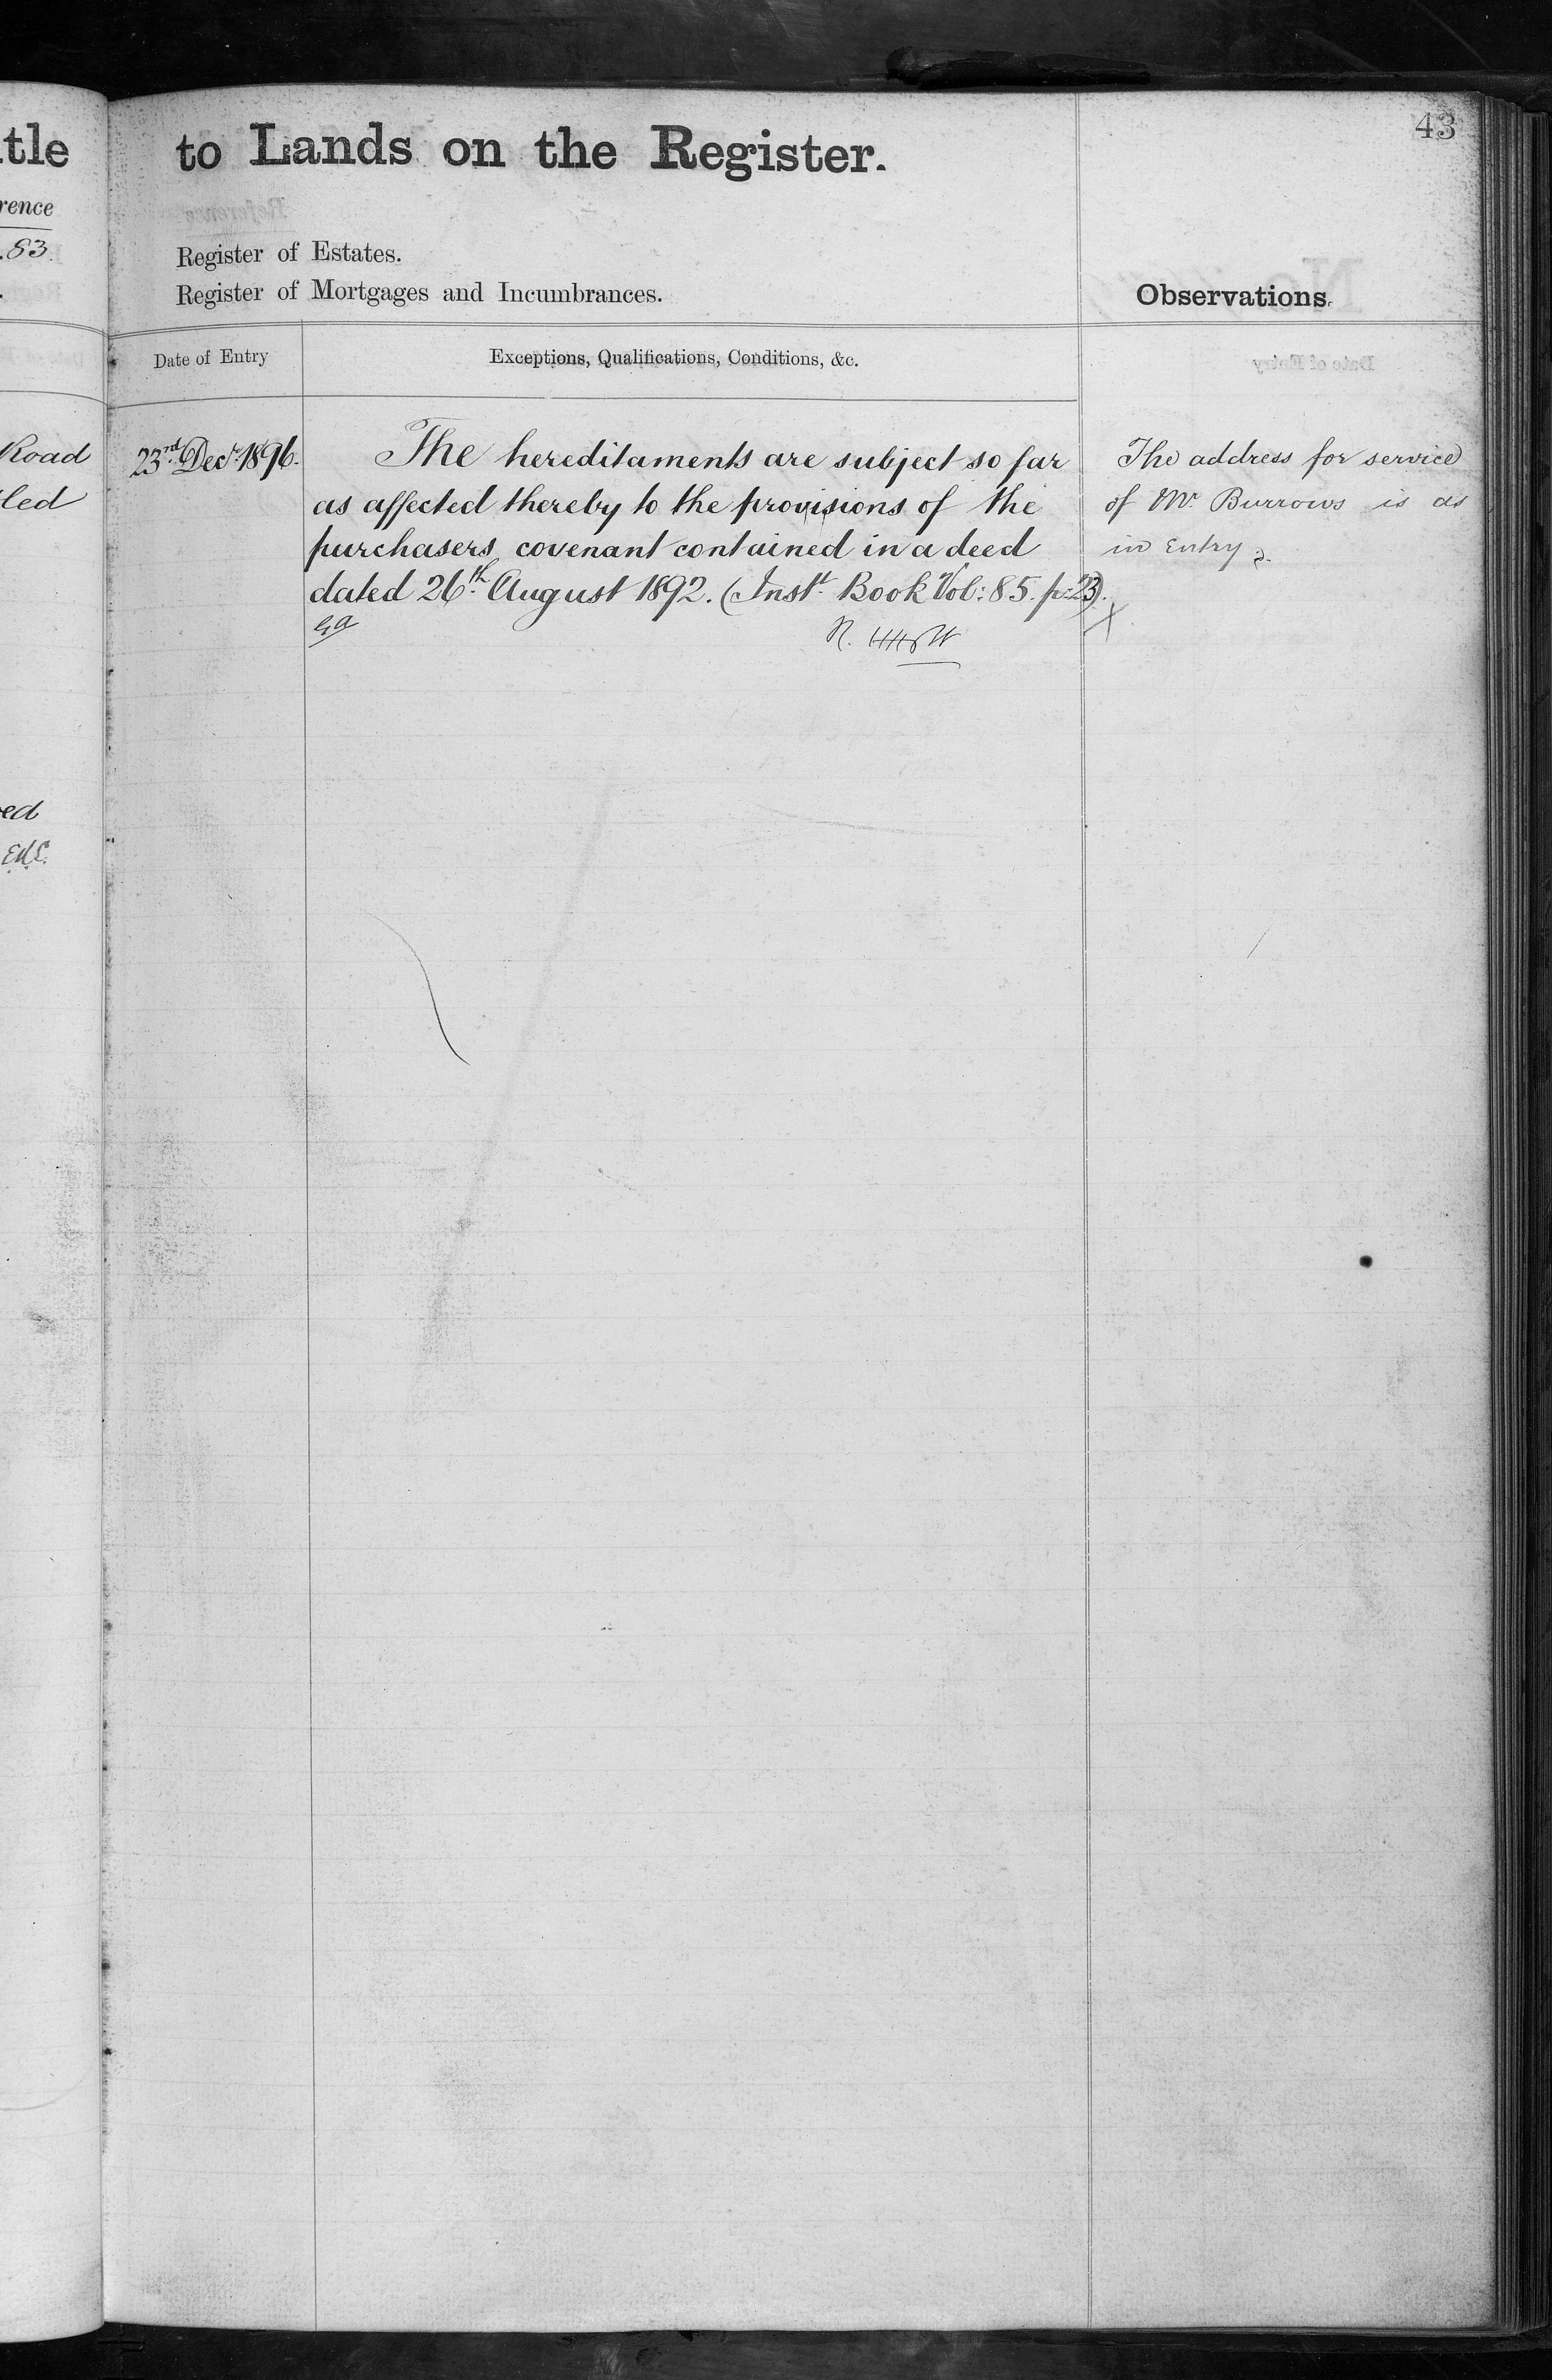 43
tle to Lands on the Register.
rence
.83.
Register of Estates.
Register of Mortgages and Incumbrances.
Observations.
Date of Entry
Exceptions, Qualifications, Conditions, &c.
Road
led
ed
23rd Decr 1896.
The hereditaments are subject so far
as affected thereby to the provisions of the
purchasers covenant contained in a deed
dated 26th August 1892. (Instt Book Vol: 85. p: 23).
The address for service
of Mr Burrows is as
in Entry 2.